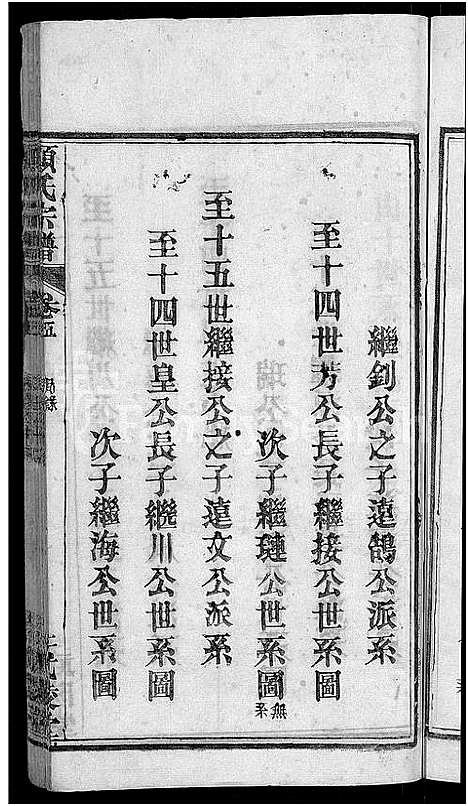 繼釗公之子遠鵠公派系
至十四世芳公長子繼接公世系圖
次子繼璉公世系圖無系
至十五世繼接公之子遠文公派系
至十四世皇公長子繞川公世系圖
次子繼海公世系圖
項氏宗譜
卷五